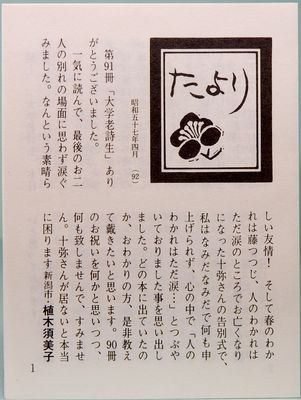 たより
昭和五十七年四月 (92)
第91冊「大学老詩生」あり
がとうございました。
一気に読んで、最後のお二
人の別れの場面に思わず涙ぐ
みました。なんという素晴ら
しい友情！ そして春のわか
れは藤つつじ、人のわかれは
ただ涙のところでお亡くなり
になった十弥さんの告別式で、
私はなみだなみだで何も申
上げられず、心の中で「人の
わかれはただ涙…」とつぶや
いておりました事を思い出し
ました。どの本に出ていたの
か、おわかりの方、是非教え
て戴きたいと思います。90冊
のお祝いを何かと思いつつ、
何も致しませんで、すみませ
ん。十弥さんが居ないと本当
に困ります 新潟市・植木須美子
1